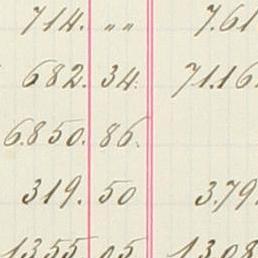 714. „ „ 7.61
682. 34. 71.16
6.850. 86.
319. 50 3.79
1355 05 1308